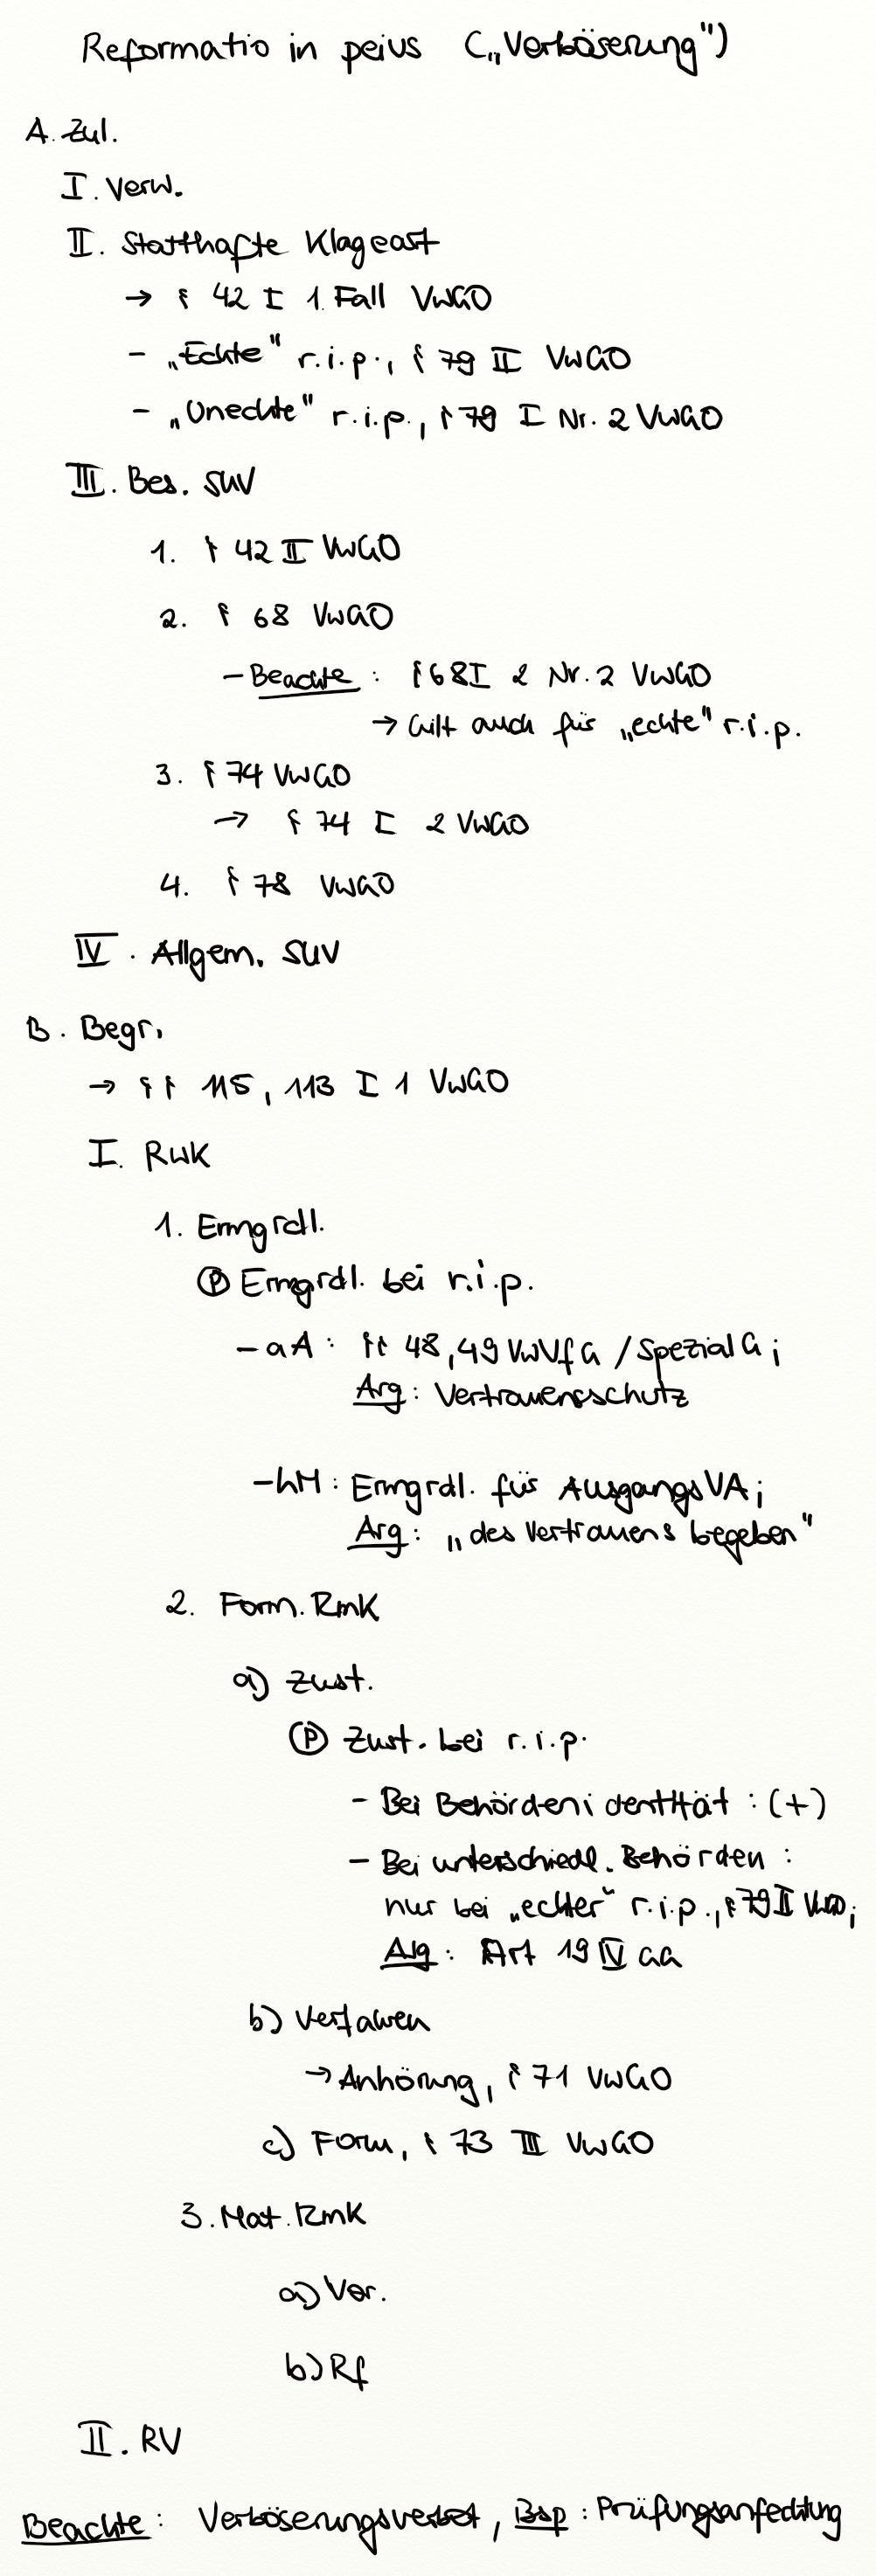 Reformatio in peius („Verböserung")
A. Zul.
I. Verw.
II. Statthafte Klageart
→ § 42 I 1. Fall VwGO
- „Echte" r.i.p., § 79 II VwGO
- „Unechte" r.i.p., § 79 I Nr. 2 VwGO
III. Bes. SUV
1. § 42 II VwGO
2. § 68 VwGO
- Beachte: § 68 I 2 Nr. 2 VwGO
→ Gilt auch für „echte" r.i.p.
3. § 74 VwGO
→ § 74 I 2 VwGO
4. § 78 VwGO
IV. Allgem. SUV
B. Begr.
→ §§ 115, 113 I 1 VwGO
I. RWK
1. Ermgrdl.
Ⓟ Ermgrdl. bei r.i.p.
- aA: §§ 48, 49 VwVfG / SpezialG;
Arg: Vertrauensschutz
- hM: Ermgrdl. für AusgangsVA;
Arg: „des Vertrauens begeben"
2. Form. RmK
a) Zust.
Ⓟ Zust. bei r.i.p.
- Bei Behördenidentität: (+)
- Bei unterschiedl. Behörden:
nur bei „echter" r.i.p., § 79 II VwGO;
Arg: Art 19 IV GG
b) Verfahren
→ Anhörung, § 71 VwGO
c) Form, § 73 III VwGO
3. Mat. RmK
a) Vor.
b) Rf
II. RV
Beachte: Verböserungsverbot, Bsp: Prüfungsanfechtung